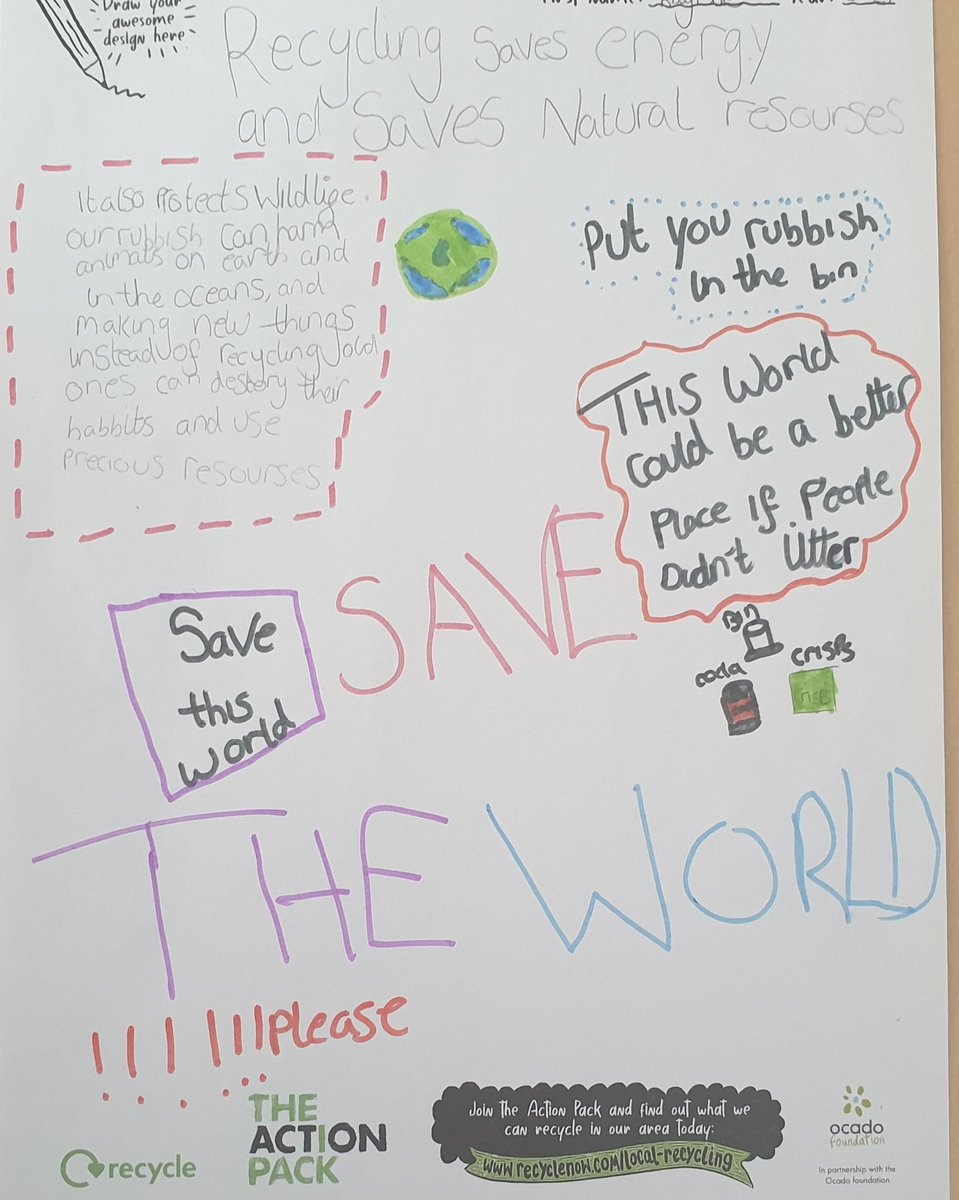 Draw your
awesome
design here
First Name:
Recycling saves energy
and Saves Natural resourses
It also Protects Wildlige.
our rubbish can harm
animals on earth and
in the oceans, and
making new things
instead of recycling old
ones can destory their
habbits and use
precious resourses
Put you rubbish
in the bin
THIS World
could be a better
Place If People
Didn't litter
Save
this
world
SAVE
Bin
cocla
crisps
THE WORLD
!!!!!!please
recycle
THE
ACTION
PACK
Join the Action Pack and find out what we
can recycle in our area today:
www.recyclenow.com/local-recycling
ocado
foundation
In partnership with the
Ocado foundation